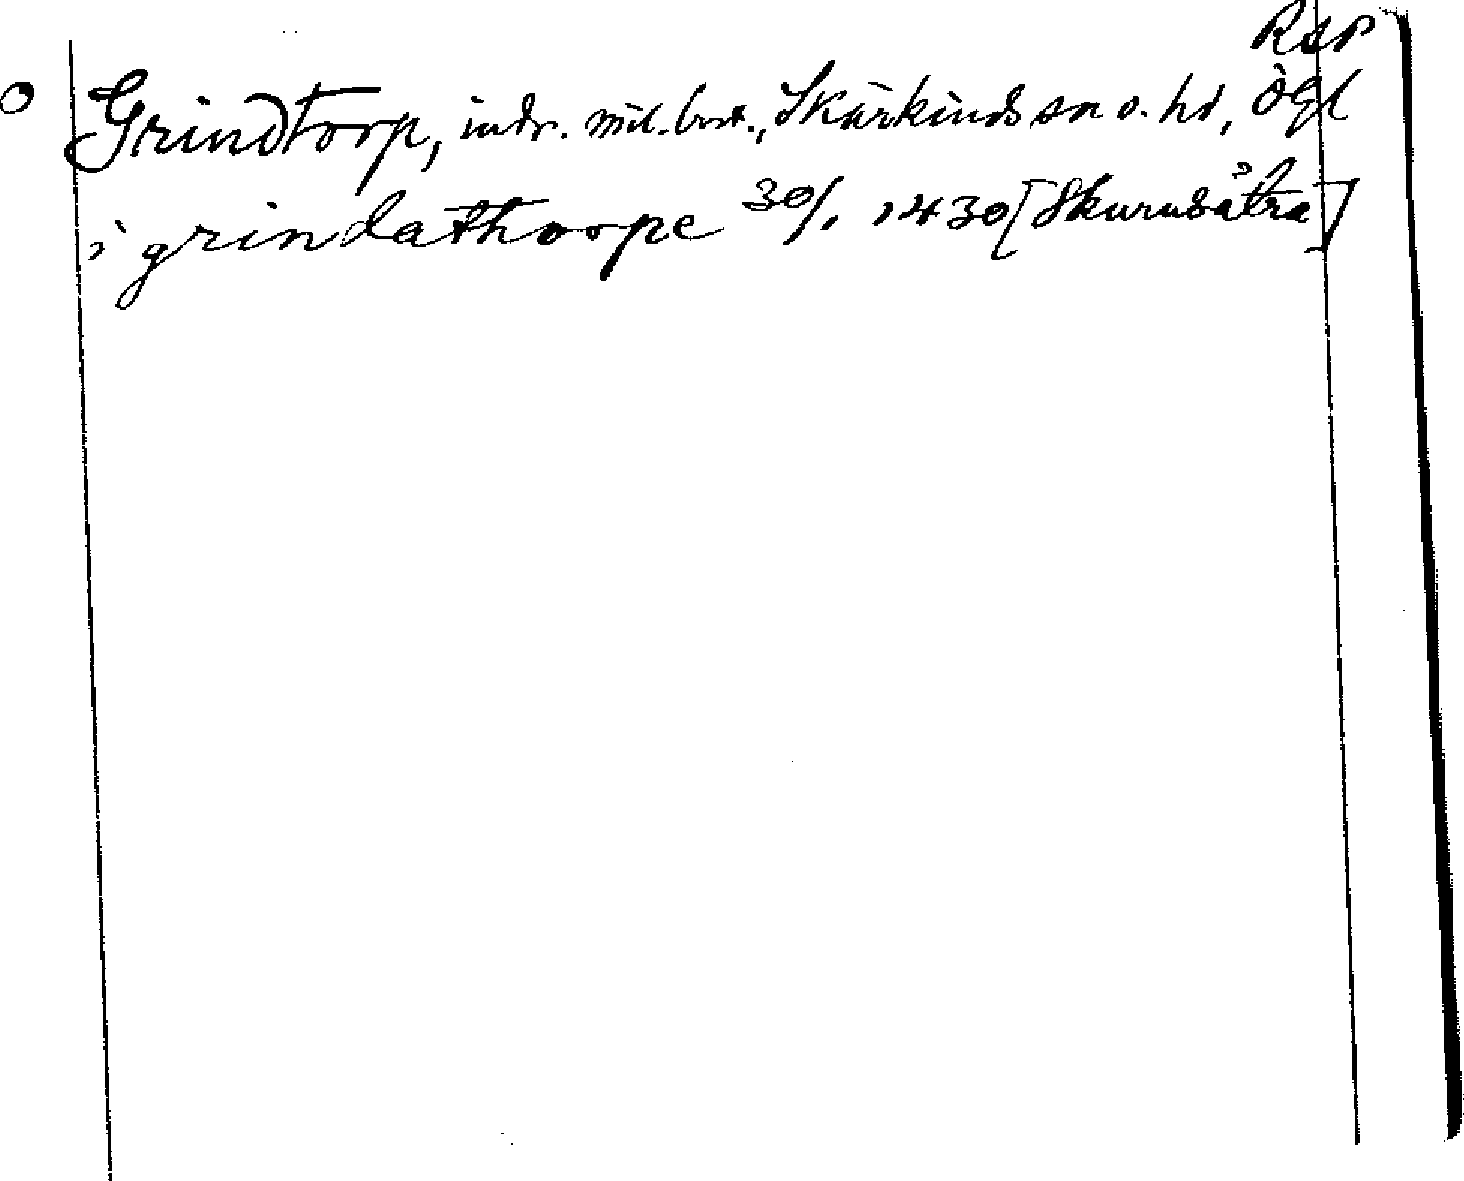 Rap
Grindtorp, indr. mil. bost., Skärkinds sn o. hd, Ögl
i grindathorpe 30/1 1430 [Skurusätra]